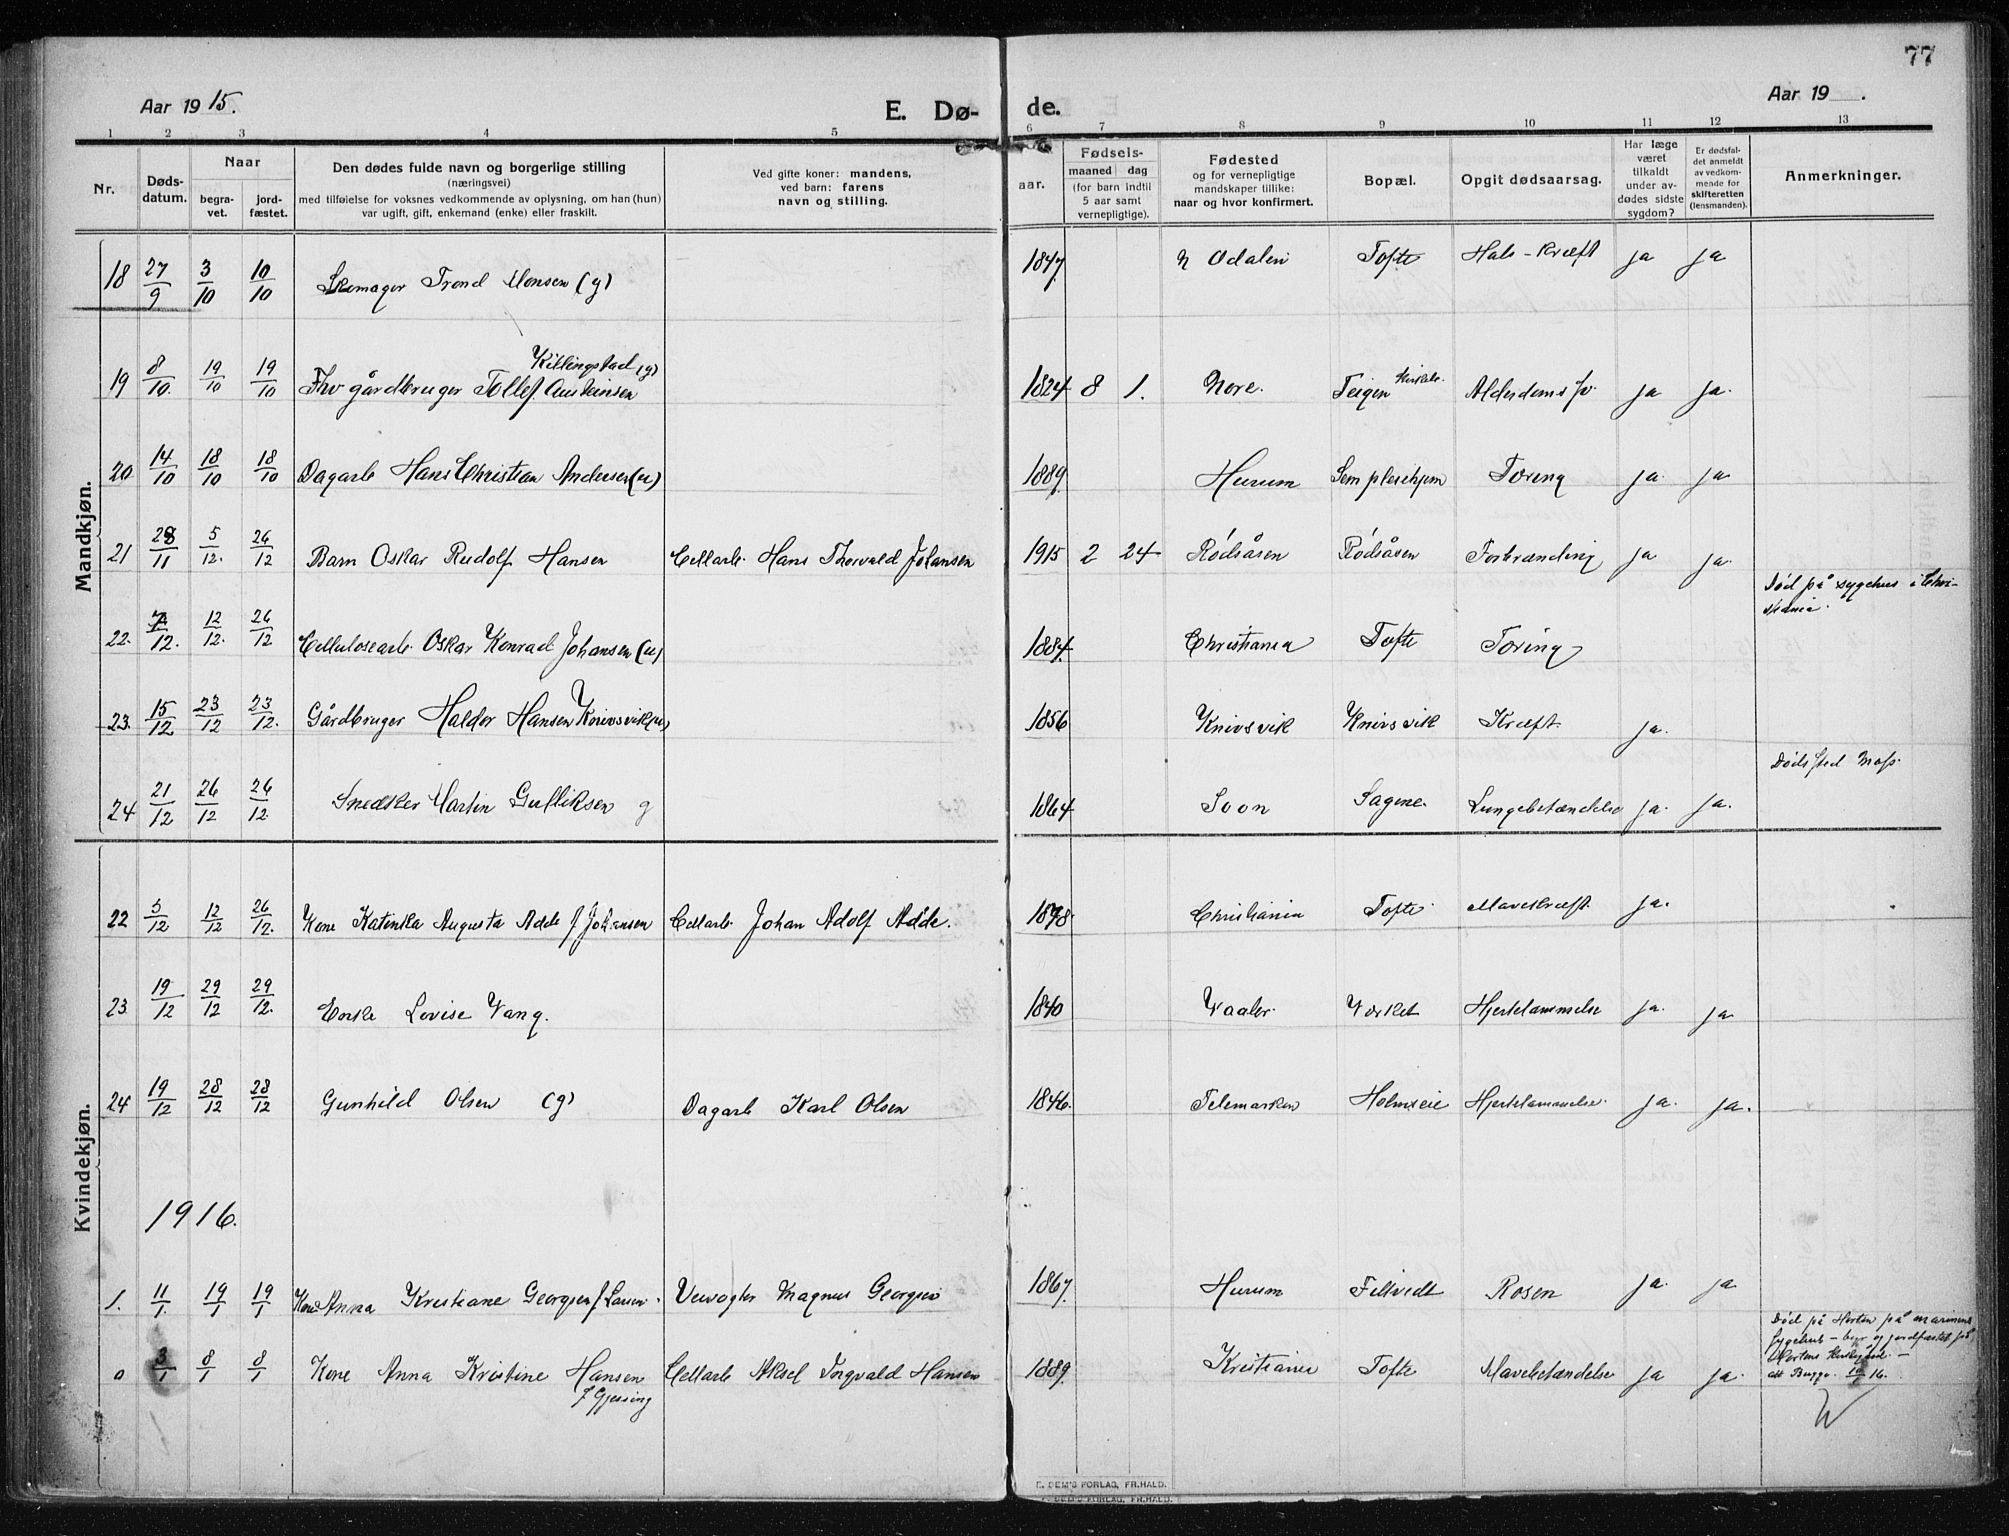 77
Aar 1915.
E. Dø-
de.
Aar 19 .
1 2 3 4 5 6 7 8 9 10 11 12 13
Nr.
Døds-
datum.
Naar
begra-
vet.
jord-
fæstet.
Den dødes fulde navn og borgerlige stilling
(næringsvei)
med tilføielse for voksnes vedkommende av oplysning, om han (hun)
var ugift, gift, enkemand (enke) eller fraskilt.
Ved gifte koner: mandens,
ved barn: farens
navn og stilling.
aar.
Fødsels-
maaned dag
(for barn indtil
5 aar samt
vernepligtige).
Fødested
og for vernepligtige
mandskaper tillike:
naar og hvor konfirmert.
Bopæl.
Opgit dødsaarsag.
Har læge
været
tilkaldt
under av-
dødes sidste
sygdom?
Er dødsfal-
det anmeldt
av vedkom-
mende for
skifteretten
(lensmanden).
Anmerkninger.
Mandkjøn.
18 27/9 3/10 10/10 Skomager Trond Monsen (g) 1847. N Odalen Tofte Hals-kræft ja ja
Killingstad (g)
19 8/10. 19/10 19/10 Fhv gårdbruger Tollef Austeinsen 1824 8 1. Nore. Teigen Alderdoms ja ja.
20 14/10 18/10 18/10 Dagarb Hans Christian Andersen (u) 1889. Hurum Sem pleiehjem Tæring ja. ja
21 28/11 5/12. 26/12 Barn Oskar Rudolf Hansen Cellarb. Hans Thorvald Johansen 1915 2 24 Rødsåsen Rødsåsen Forbrænding ja ja.
Død på sygehus i Chri-
stiania.
22. 7/12. 12/12. 26/12 Cellulosearb. Oskar Konrad Johansen (u) 1884. Christiania Tofte Tæring
23. 15/12 23/12 23/12. Gårdbruger Haldor Hansen Knivsvik (u) 1856 Knivsvik Knivsvik Kræft. ja.
Dødssted Moss.
24 21/12 26/12 26/12. Snedker Martin Gulliksen g 1864 Soon Sagene. Lungebetændelse ja. ja.
Kvindekjøn.
22 5/12 12/12 26/12. Kone Katinka Augusta Adde f Johansen Cellarb. Johan Adolf Adde. 1878. Christiania Tofte Mavekræft. ja.
23. 19/12 29/12 29/12. Enke Lovise Vang. 1840 Vaaler. Verket Hjertelammelse ja. ja
24 19/12 28/12 28/12 Gunhild Olsen (g) Dagarb Karl Olsen 1846. Telemarken Holmseie Hjertelammelse. ja. ja.
1916.
1. 11/1. 19/1 19/1 Kone Anna Kristiane Georgsen f Larsen. Veivogter Magnus Georgsen 1867. Hurum Filtvedt Rosen ja. ja
Død på Horten på marinens
sygehus – begr og jordfæstet på
Hortens kirkegård. –
att Bugge. 16.
0 3/1 8/1 8/1 Kone Anna Kristine Hansen Cellarb Aksel Ingvald Hansen 1889. Kristiania Tofte Mavebetændelse ja ja.
f Gjessing
E. SEM'S FORLAG, FR.HALD.